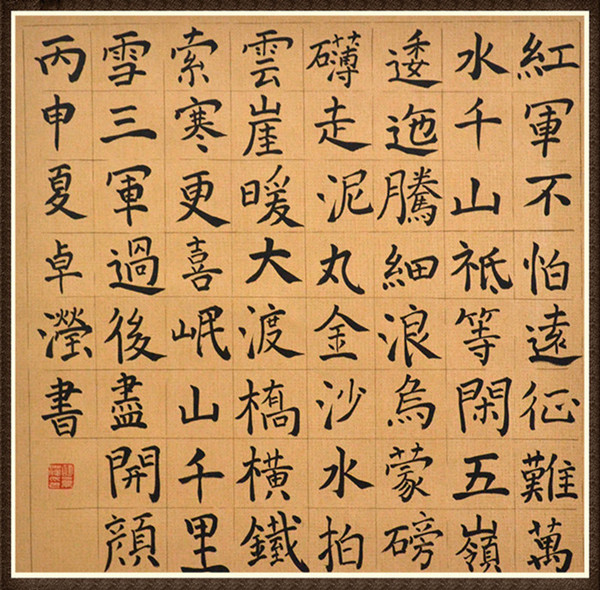 紅軍不怕遠征難萬
水千山祗等閑五嶺
逶迤騰細浪烏蒙磅
礴走泥丸金沙水拍
雲崖暖大渡橋橫鐵
索寒更喜岷山千里
雪三軍過後盡開顔
丙申夏卓瀅書